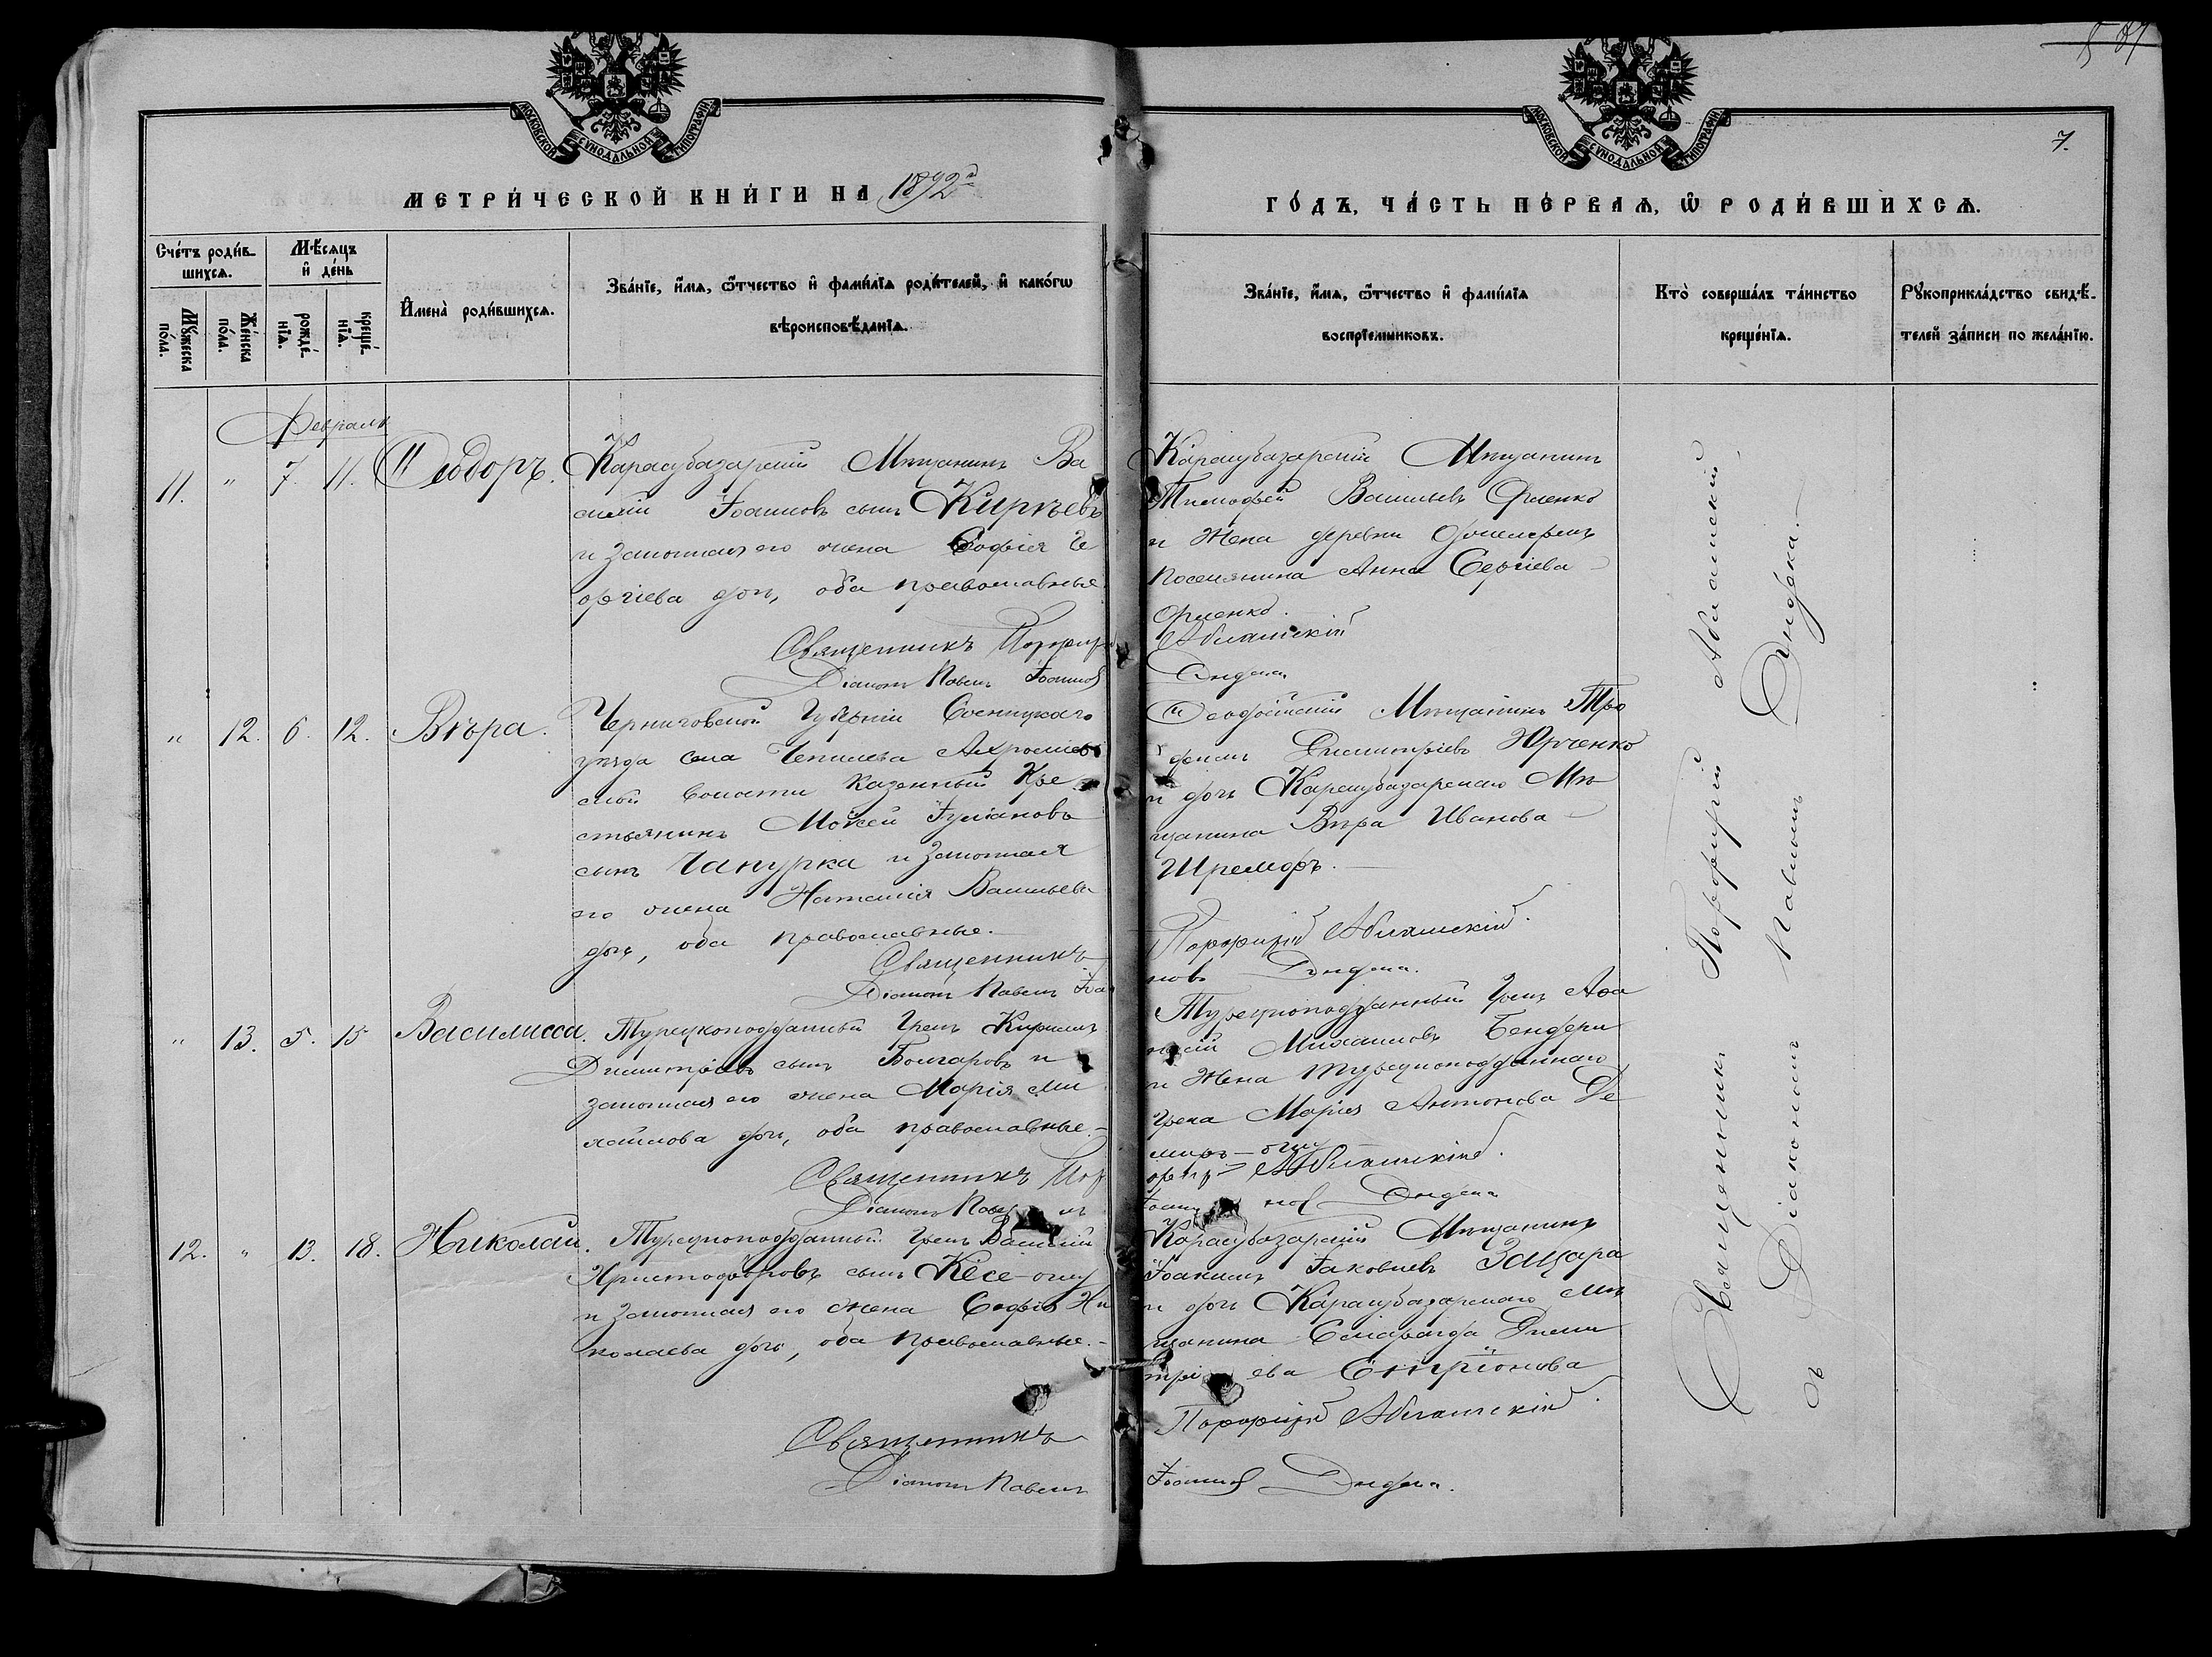 7.
МОСКОВСКОЙ СѴНОДАЛЬНОЙ ТИПОГРАФІИ
МОСКОВСКОЙ СѴНОДАЛЬНОЙ ТИПОГРАФІИ
МЕТРИ́ЧЕСКОЙ КНИ́ГИ НА 1892
ГО́ДЪ, ЧА́СТЬ ПЕ́РВАѦ, Ѡ҆ РОДИ́ВШИХСѦ.
Сче́тъ роди́в-
шихсѧ.
Мꙋ́жеска по́ла.
Же́нска по́ла.
Мѣ́сяцъ и҆ де́нь
рожде́-нїѧ.
креще́-нїѧ.
И҆мена̀ роди́вшихсѧ.
Зва́нїе, и҆́мѧ, ѻ҆́тчество и҆ фами́лїѧ роди́телей, и҆ како́гѡ
вѣроисповѣ́данїѧ.
Зва́нїе, и҆́мѧ, ѻ҆́тчество и҆ фами́лїѧ
воспрїе́мниковъ.
Кто̀ соверша́лъ та́инство
креще́нїѧ.
Рꙋкоприкла́дство свидѣ́-
телей за́писи по жела́нїю.
Февраль
11. " 7. 11. Ѳеодоръ.
Карасубазарскій Мѣщанинъ Ва
силій Іоанновъ сынъ Кирѣевъ
и законная его жена Софія Ге
оргіева дочь, оба православные
Священникъ Порфир
Діаконъ Павелъ Іоаннов
Карасубазарскій Мѣщанинъ
Тимофей Васильевъ
и Жена деревни
поселянина Анна Сергіева
Абламскій
Дидека
" 12. 6. 12. Вѣра.
Черниговской Губерніи Сосницкаго
уѣзда села
ской волости казенный Кре
стьянинъ Мойсей Іуліановъ
сынъ Чапурка и законная
его жена Наталія Васильева
дочь, оба православные.
Священникъ
Діаконъ Павелъ Іоан
Ѳеодосійскій Мѣщанинъ Тро
фимъ Димитріевъ Юрченко
и дочь Карасубазарскаго Мѣ
щанина Вѣра Иванова
Шремфъ.
Порфирій Абламскій.
нов Дидека.
" 13. 5. 15 Василисса.
Турецкоподданный Грекъ Кириллъ
Димитріевъ сынъ Болгаровъ и
законная его жена Марія Ми
хайлова дочь, оба православные.
Священникъ Пор
Діаконъ Павелъ
Турецкоподданный Грекъ Аѳа
насій Михайловъ Бендери
и Жена турецкоподданнаго
Грека Марія Антонова Де
миръ-оглу
фирій Абламскій.
Іоаннов Дидека
12. " 13. 18. Николай.
Турецкоподданный Грекъ Василій
Христофоровъ сынъ Кесе-оглу
и законная его жена Софія Ни
колаева дочь, оба православные.
Священникъ
Діаконъ Павелъ
Карасубазарскій Мѣщанинъ
Іоакимъ Іаковлевъ Защара
и дочь Карасубазарскаго Мѣ
щанина Смарагда Дими
тріева Спиріонова
Порфирій Абламскій.
Іоаннов Дидека.
Священникъ Порфирій Абламскій
съ Діакономъ Павломъ Дидека.